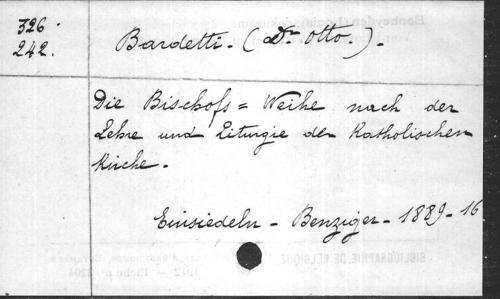 326.
242.
Bardetti. (Dr Otto.).
Die Bischofs = Weihe nach der
Lehre und Liturgie der Katholischen
Kirche.
Einsiedeln - Benziger - 1889 - 16
BIBLIOGRAPHIE DE BELGIQUE